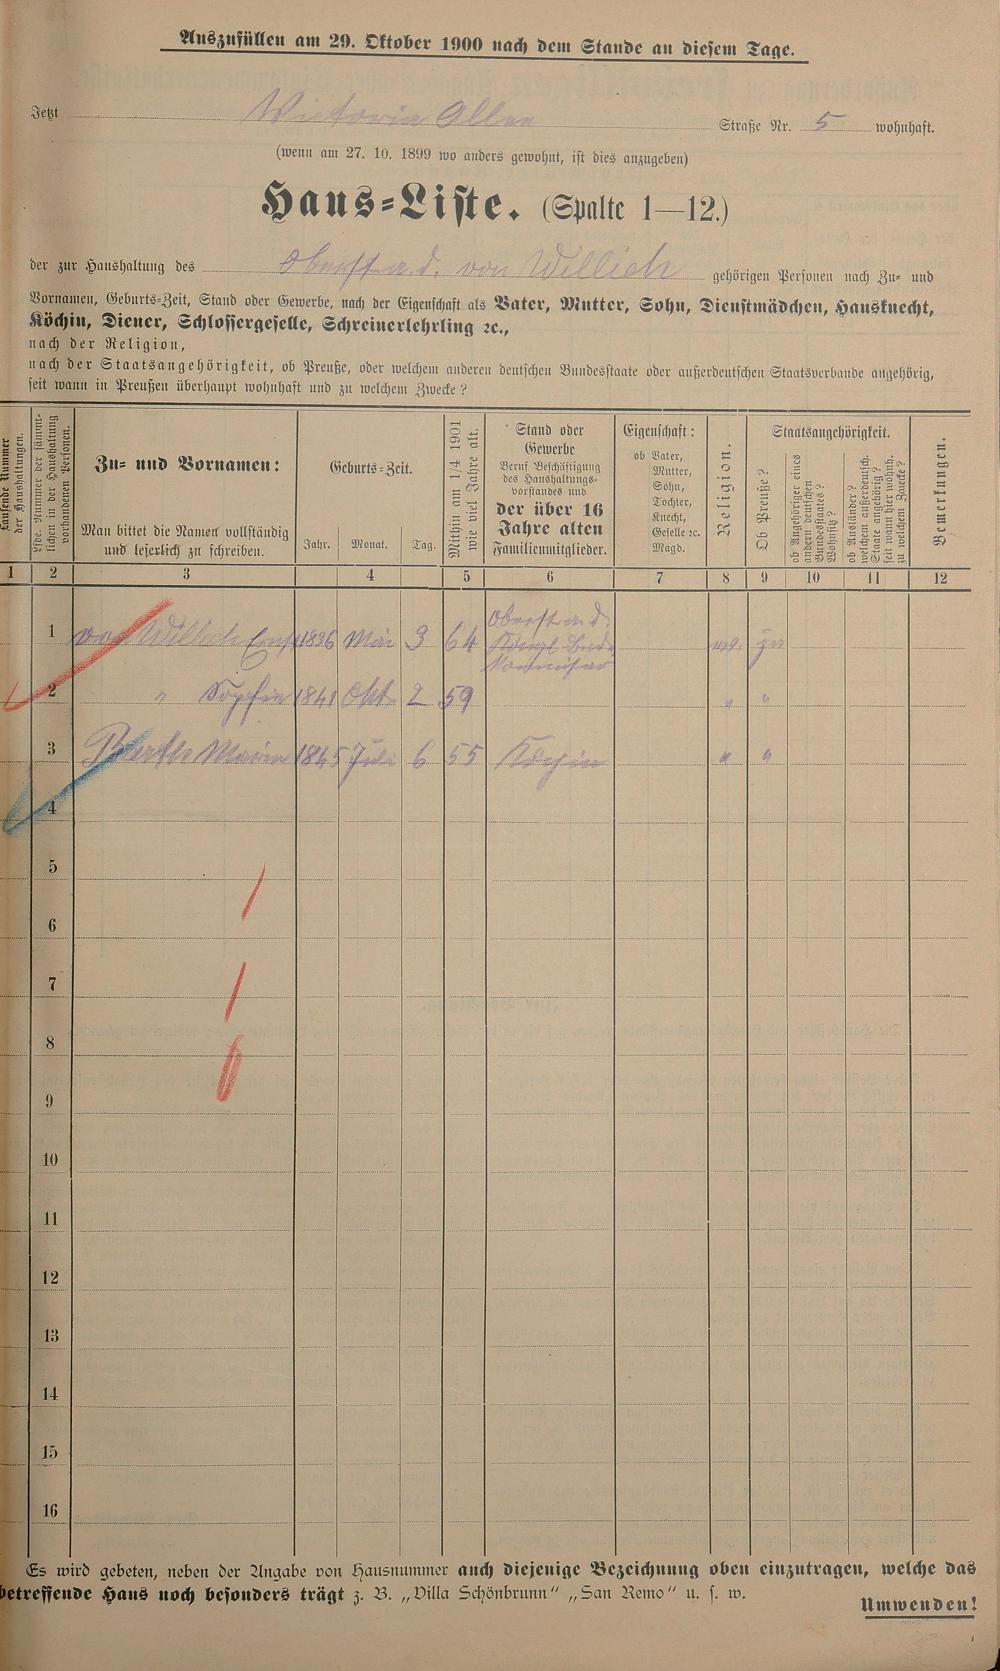 Auszufüllen am 29. Oktober 1900 nach dem Stande an diesem Tage.
Jetzt Victoria Allee Straße Nr. 5 wohnhaft.
(wenn am 27. 10. 1899 wo anders gewohnt, ist dies anzugeben)
Haus=Liste. (Spalte 1—12.)
der zur Haushaltung des Oberst a. d. von Willich gehörigen Personen nach Zu= und
Vornamen, Geburts=Zeit, Stand oder Gewerbe, nach der Eigenschaft als Vater, Mutter, Sohn, Dienstmädchen, Hausknecht,
Köchin, Diener, Schlossergeselle, Schreinerlehrling ꝛc.,
nach der Religion,
nach der Staatsangehörigkeit, ob Preuße, oder welchem anderen deutschen Bundesstaate oder außerdeutschen Staatsverbande angehörig,
seit wann in Preußen überhaupt wohnhaft und zu welchem Zwecke?
Laufende Nummer
der Haushaltungen.
Lfde. Nummer der sämmt=
lichen in der Haushaltung
vorhandenen Personen.
Zu= und Vornamen:
Man bittet die Namen vollständig
und leserlich zu schreiben.
Geburts=Zeit.
Jahr. Monat. Tag.
Mithin am 1/4 1901
wie viel Jahre alt.
Stand oder
Gewerbe
Beruf Beschäftigung
des Haushaltungs=
vorstandes und
der über 16
Jahre alten
Familienmitglieder.
Eigenschaft:
ob Vater,
Mutter,
Sohn,
Tochter,
Knecht,
Geselle ꝛc.
Magd.
Religion.
Staatsangehörigkeit.
Ob Preuße?
ob Angehöriger eines
andern deutschen
Bundesstaates?
Wohnsitz?
ob Ausländer?
welchem außerdeutsch.
Staate angehörig?
seit wann hier wohnh.
zu welchem Zwecke?
Bemerkungen.
1 2 3 4 5 6 7 8 9 10 11 12
1 von Willich Ernst 1836 Mai 3 64 Oberst a. d.
Königl.
2 " Sophie 1841 Okt. 2 59 " "
3 Marie 1845 Juli 6 55 Köchin " "
4
5
6
7
8
9
10
11
12
13
14
15
16
Es wird gebeten, neben der Angabe von Hausnummer auch diejenige Bezeichnung oben einzutragen, welche das
betreffende Haus noch besonders trägt z. B. „Villa Schönbrunn" „San Remo" u. s. w.
Umwenden!